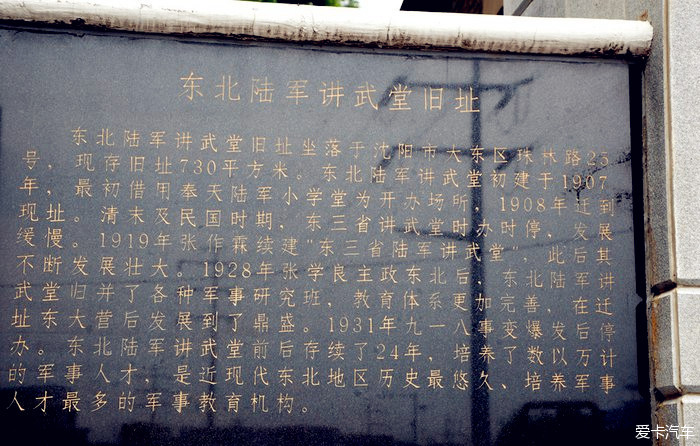 东北陆军讲武堂旧址
东北陆军讲武堂旧址坐落于沈阳市大东区珠林路25
号，现存旧址730平方米。东北陆军讲武堂初建于1907
年，最初借用奉天陆军小学堂为开办场所，1908年迁到
现址。清末及民国时期，东三省讲武堂时办时停，发展
缓慢。1919年张作霖续建"东三省陆军讲武堂"，此后其
不断发展壮大。1928年张学良主政东北后，东北陆军讲
武堂归并了各种军事研究班，教育体系更加完善，在迁
址东大营后发展到了鼎盛。1931年九一八事变爆发后停
办。东北陆军讲武堂前后存续了24年，培养了数以万计
的军事人才，是近现代东北地区历史最悠久、培养军事
人才最多的军事教育机构。
爱卡汽车